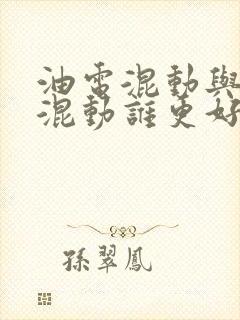 油電混動與
混動誰更好
孫翠鳳